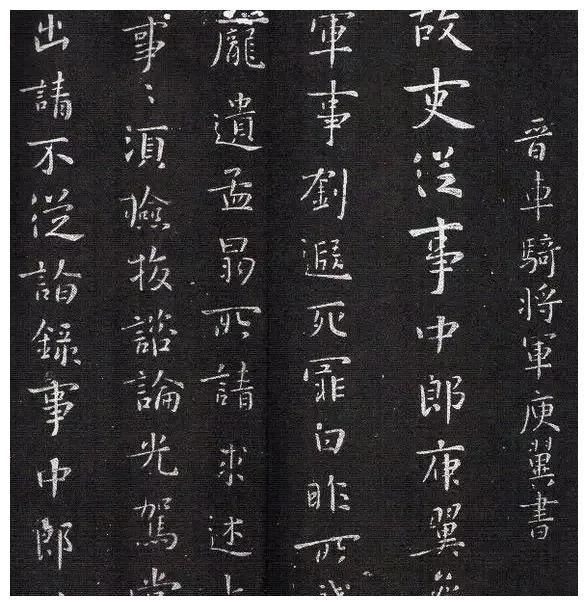 晉車騎將軍庾翼書
故吏從事中郎庾翼
軍事劉遐死罪白昨所
龐遺孟昺所請求述
事〻須檢校諮論光駕
出請不從諭錄事中郎